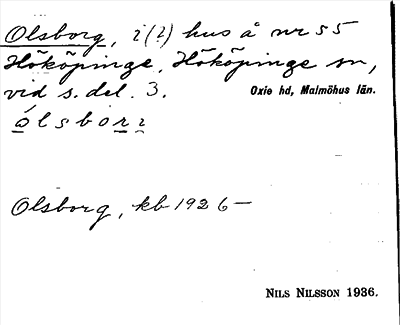 Olsborg, i(?) hus å nr 55
Hököpinge, Hököpinge sn,
vid s. del. 3.
Oxie hd, Malmöhus län.
ólsbor
Olsborg, kb 1926—
NILS NILSSON 1936.